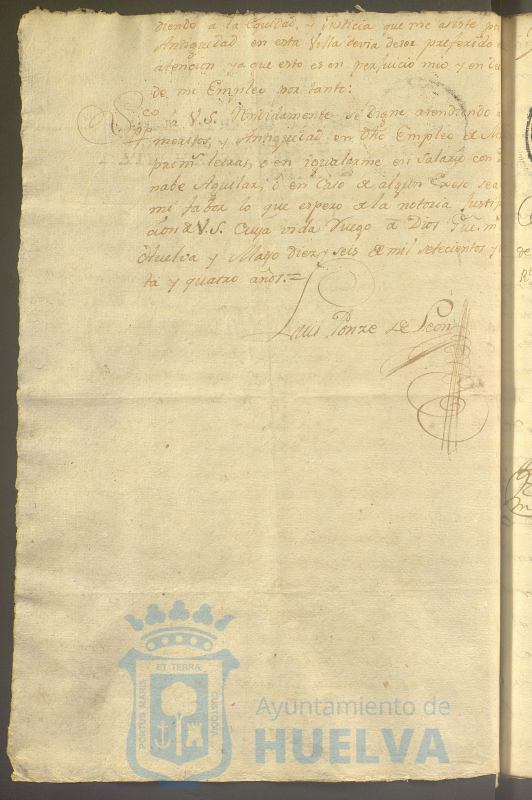 diendo a la equidad, y justicia que me asiste por
Antiguedad en esta Villa devia deser preferido
atencion, ya que esto es en perjuicio mio y en
de mi Empleo por tanto:
Sup.co a V.S. Rendidamente se digne atendiendo a
meritos, y Antiguedad en dho Empleo de
prim.s letras, o en igualarme en Salario con
nabe Aguilar, o en caso de algun Exeso sea
mi fabor lo que espero de la notoria Justifi
cion de V.S. Cuya vida Ruego a Dios Gue. m.
Huelva y Mayo diez y seis de mil setecientos y
ta y quatro años.=
Luis Ponze de Leon
ET TERRA
PORTUS MARIS
CUSTODIA
Ayuntamiento de
HUELVA